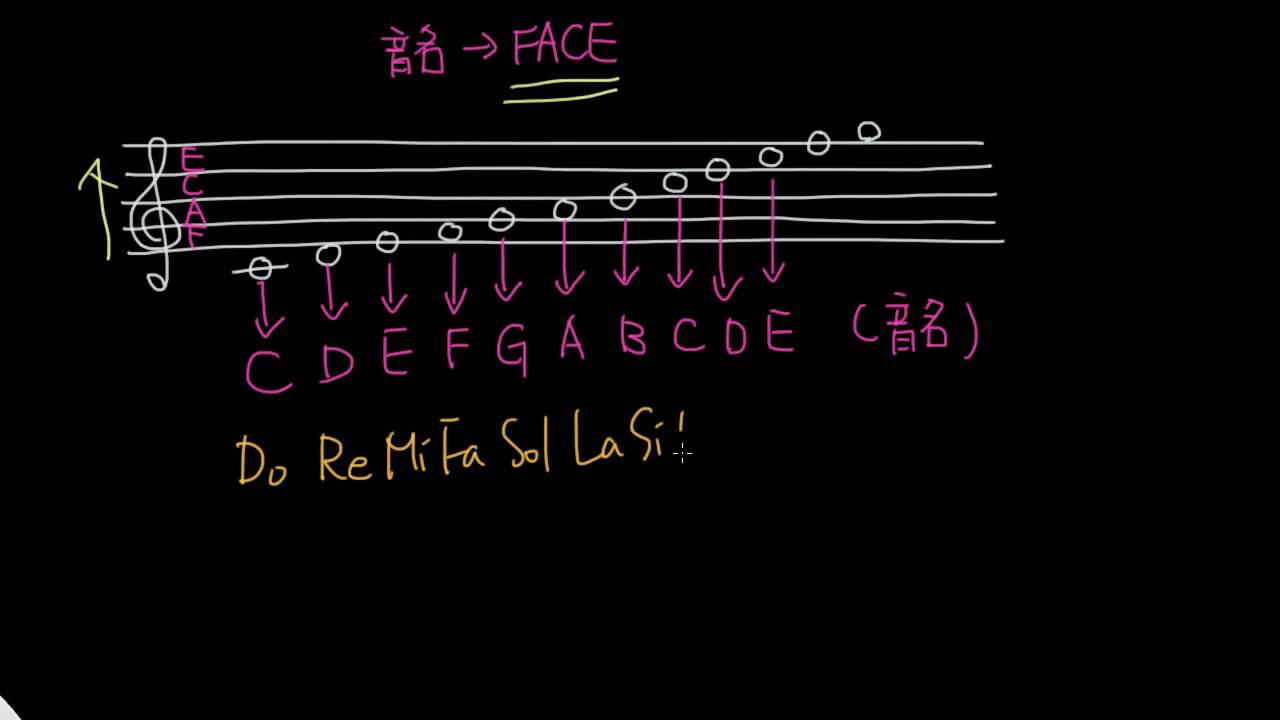 音名→FACE
E
C
A
F
C D E F G A B C D E (音名)
Do Re Mi Fa Sol La Si